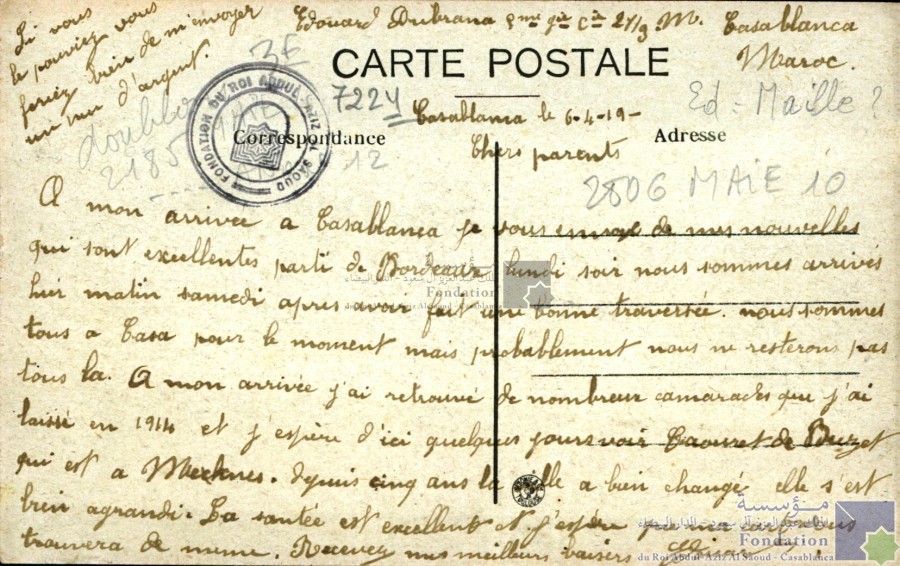 Si vous
le pouviez vous
feriez bien de m'envoyer
un peu d'argent.
Edouard Dubrana 2/3 M. Casablanca
Maroc.
CARTE POSTALE
3E
7224
Ed = Maille ?
Casablanca le 6-4-19-
Correspondance
Adresse
doubler
2185
12
FONDATION DU ROI ABDUL AZIZ AL SAOUD
Chers parents
2806 MAIE 10
A mon arrivée a Casablanca je vous envoye de mes nouvelles
qui sont excellentes parti de Bordeaux lundi soir nous sommes arrivés
hier matin samedi apres avoir fait une bonne traversée. nous sommes
tous a Casa pour le moment mais probablement nous ne resterons pas
tous la. A mon arrivée j'ai retrouvé de nombreux camarades que j'ai
laissé en 1914 et j'espère d'ici quelques jours voir de Buzet
qui est a Meeknes. depuis cinq ans la ville a bien changé elle s'est
bien agrandi. La santée est excellent et j'espère que ma
trouvera de meme. Recevez mes meilleurs baisers
مؤسسة
الملك عبد العزيز آل سعود - الدار البيضاء
Fondation
du Roi Abdul-Aziz Al Saoud - Casablanca
مؤسسة
الملك عبد العزيز آل سعود - الدار البيضاء
Fondation
du Roi Abdul-Aziz Al Saoud - Casablanca